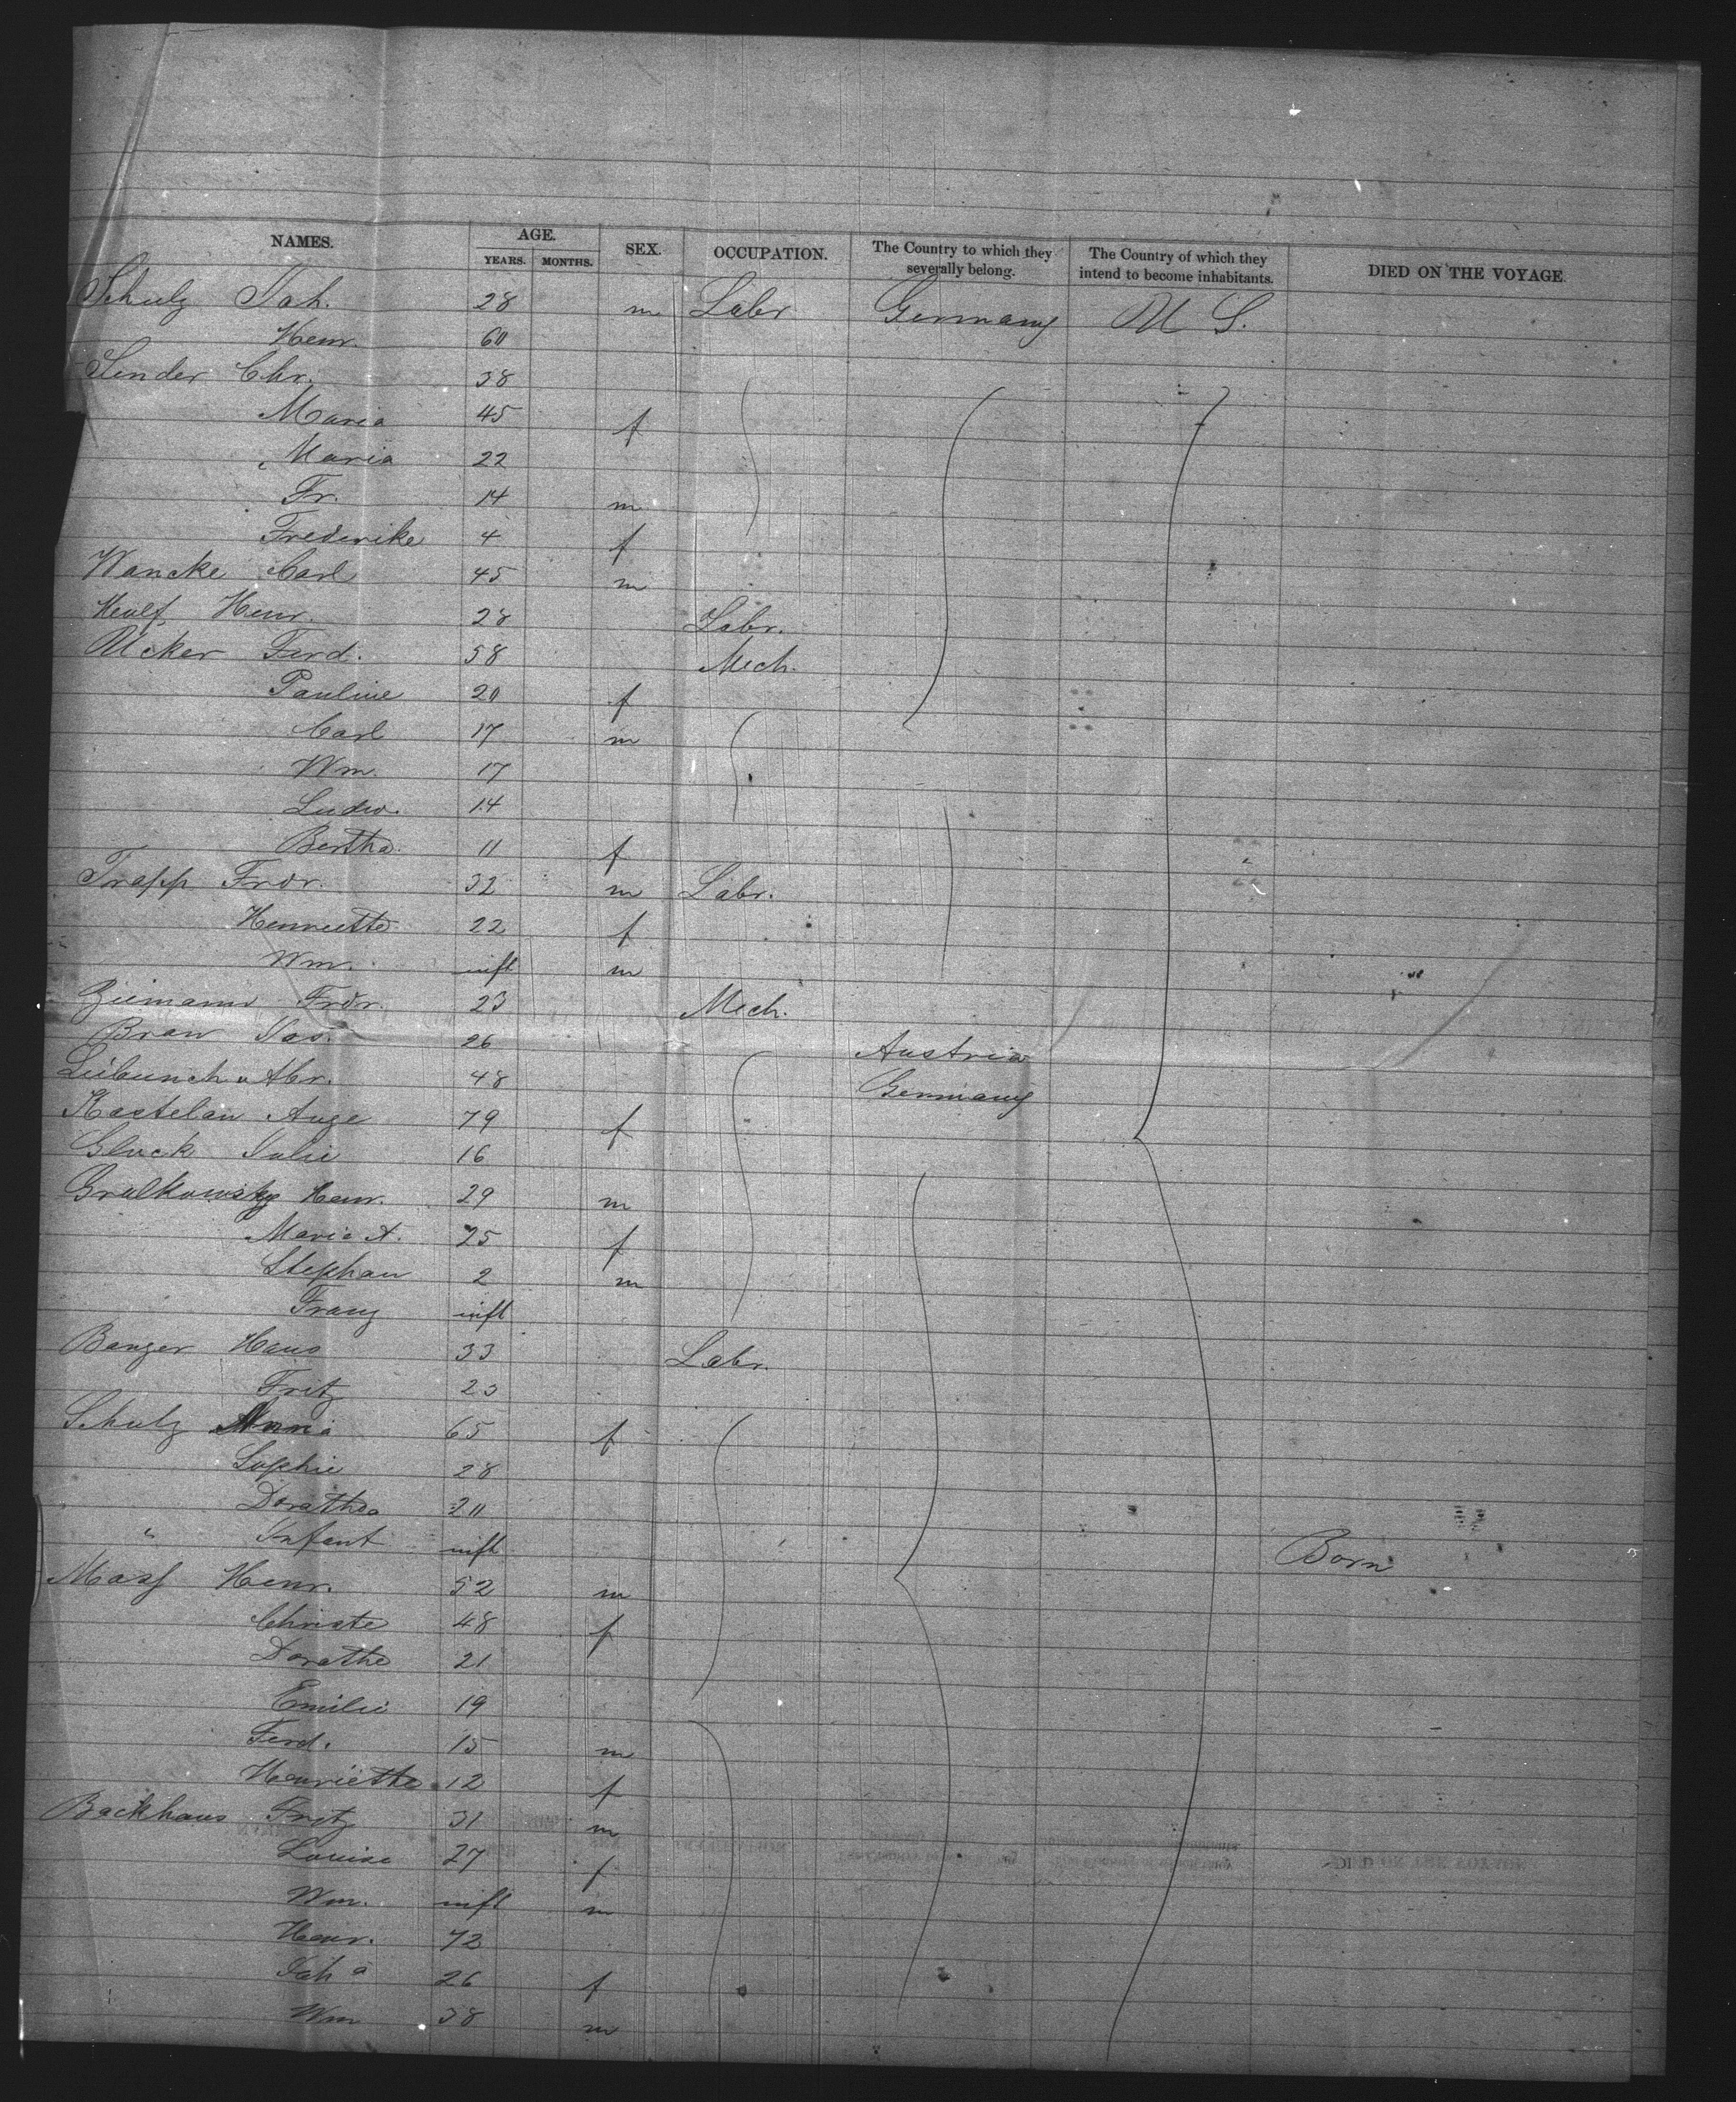 NAMES. AGE. YEARS. MONTHS. SEX. OCCUPATION. The Country to which they severally belong. The Country of which they intend to become inhabitants. DIED ON THE VOYAGE.
Schulz Joh. 28 m Labr Germany U S.
Henr. 60
Sender Chr. 38
Maria 45 f
Maria 22
Fr. 14 m
Frederike 4 f
Wancke Carl 45 m
Henr. 28 Labr.
Ucker Ferd. 58 Mech.
Pauline 20 f
Carl 17 m
Wm. 17
Ludw. 14
Bertha 11 f
Trapp Frdr. 32 m Labr.
Henriette 22 f
Wm. inft m
Ziemann Frdr. 23 Mech.
Braw Jos. 26 Austria
Abr. 48 Germany
Kastelan Auge 79 f
Gluck Julie 16
Gralkowsky Henr. 29 m
Maria A. 25 f
Stephan 2 m
Franz inft
Banger Hans 33 Labr.
Fritz 23
Schulz Maria 65 f
Sophie 28
Dorathea 20
" Infant inft Born
Mass Henr. 52 m
Christe 48 f
Dorathe 21
Emilie 19
Ferd. 15 m
Henriethe 12 f
Backhaus Fritz 31 m
Louise 27 f
Wm. inft m
Henr. 72
Joh a 26 f
Wm 38 m